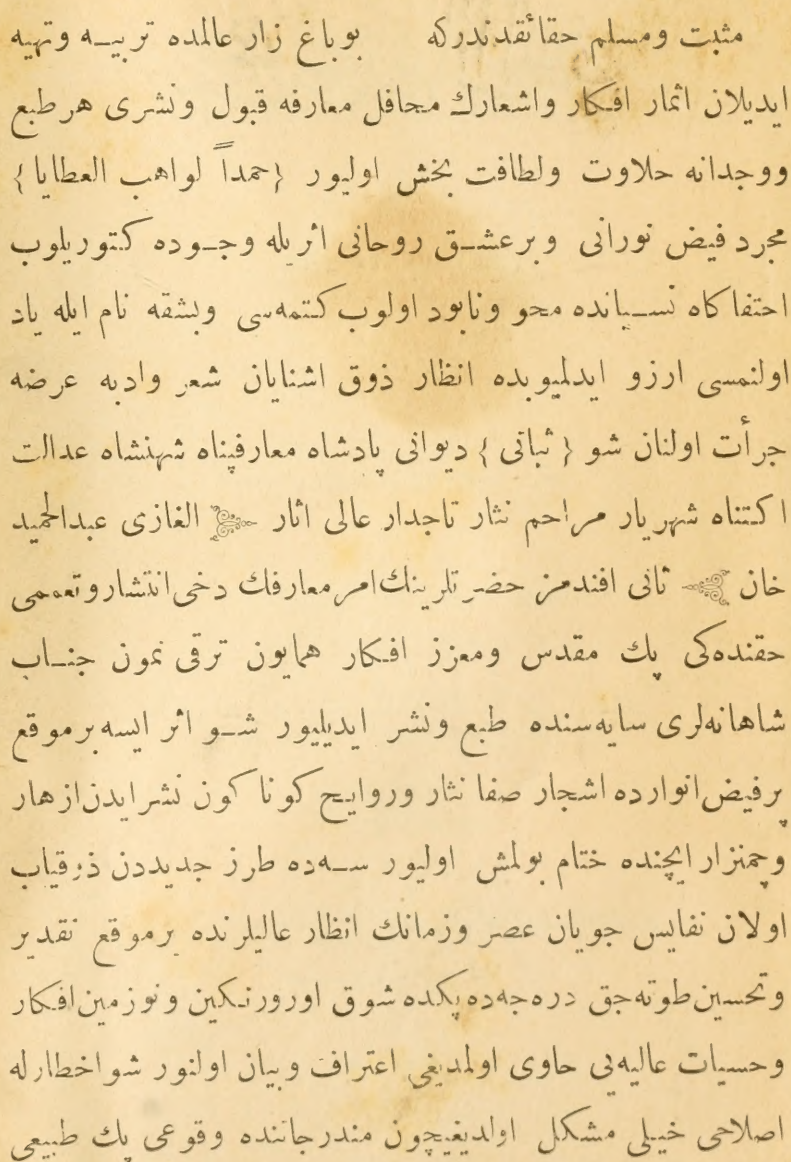 مثبت ومسلم حقائقدندركه بو باغ زار عالمده تربيـه وتهيه
ايديلان اثمار افكار واشعارك محافل معارفه قبول ونشرى هر طبع
ووجدانه حلاوت ولطافت بخش اوليور {حمداً لواهب العطايا}
مجرد فيض نورانى وبرعشـق روحانى اثريله وجـوده كتوريلوب
احتفا كاه نسـيانده محو ونابود اولوب كتمه‌سى وبشقه نام ايله ياد
اولنمسى ارزو ايدلميوبده انظار ذوق اشنايان شعر وادبه عرضه
جرأت اولنان شو {ثباتى} ديوانى پادشاه معارفپناه شهنشاه عدالت
اكتناه شهريار مراحم نثار تاجدار عالى اثار الغازى عبدالحميد
خان ثانى افندمز حضرتلرينك امر معارفك دخى انتشار وتعممى
حقنده‌كى پك مقدس ومعزز افكار همايون ترقى نمون جنـاب
شاهانه‌لرى سايه‌سنده طبع ونشر ايديليور شـو اثر ايسه برموقع
پرفيض انوارده اشجار صفا نثار وروايح كونا كون نشر ايدن ازهار
وچمنزار ايچنده ختام بولمش اوليور سـه‌ده طرز جديددن ذوقياب
اولان نفايس جويان عصر وزمانك انظار عاليلرنده برموقع تقدير
وتحسين طوته‌جق درجه‌ده پكده شوق اور ورنكين ونوزمين افكار
وحسيات عاليه‌يى حاوى اولمديغى اعتراف وبيان اولنور شو اخطارله
اصلاحى خيلى مشكل اولديغيچون مندرجاتنده وقوعى پك طبيعى